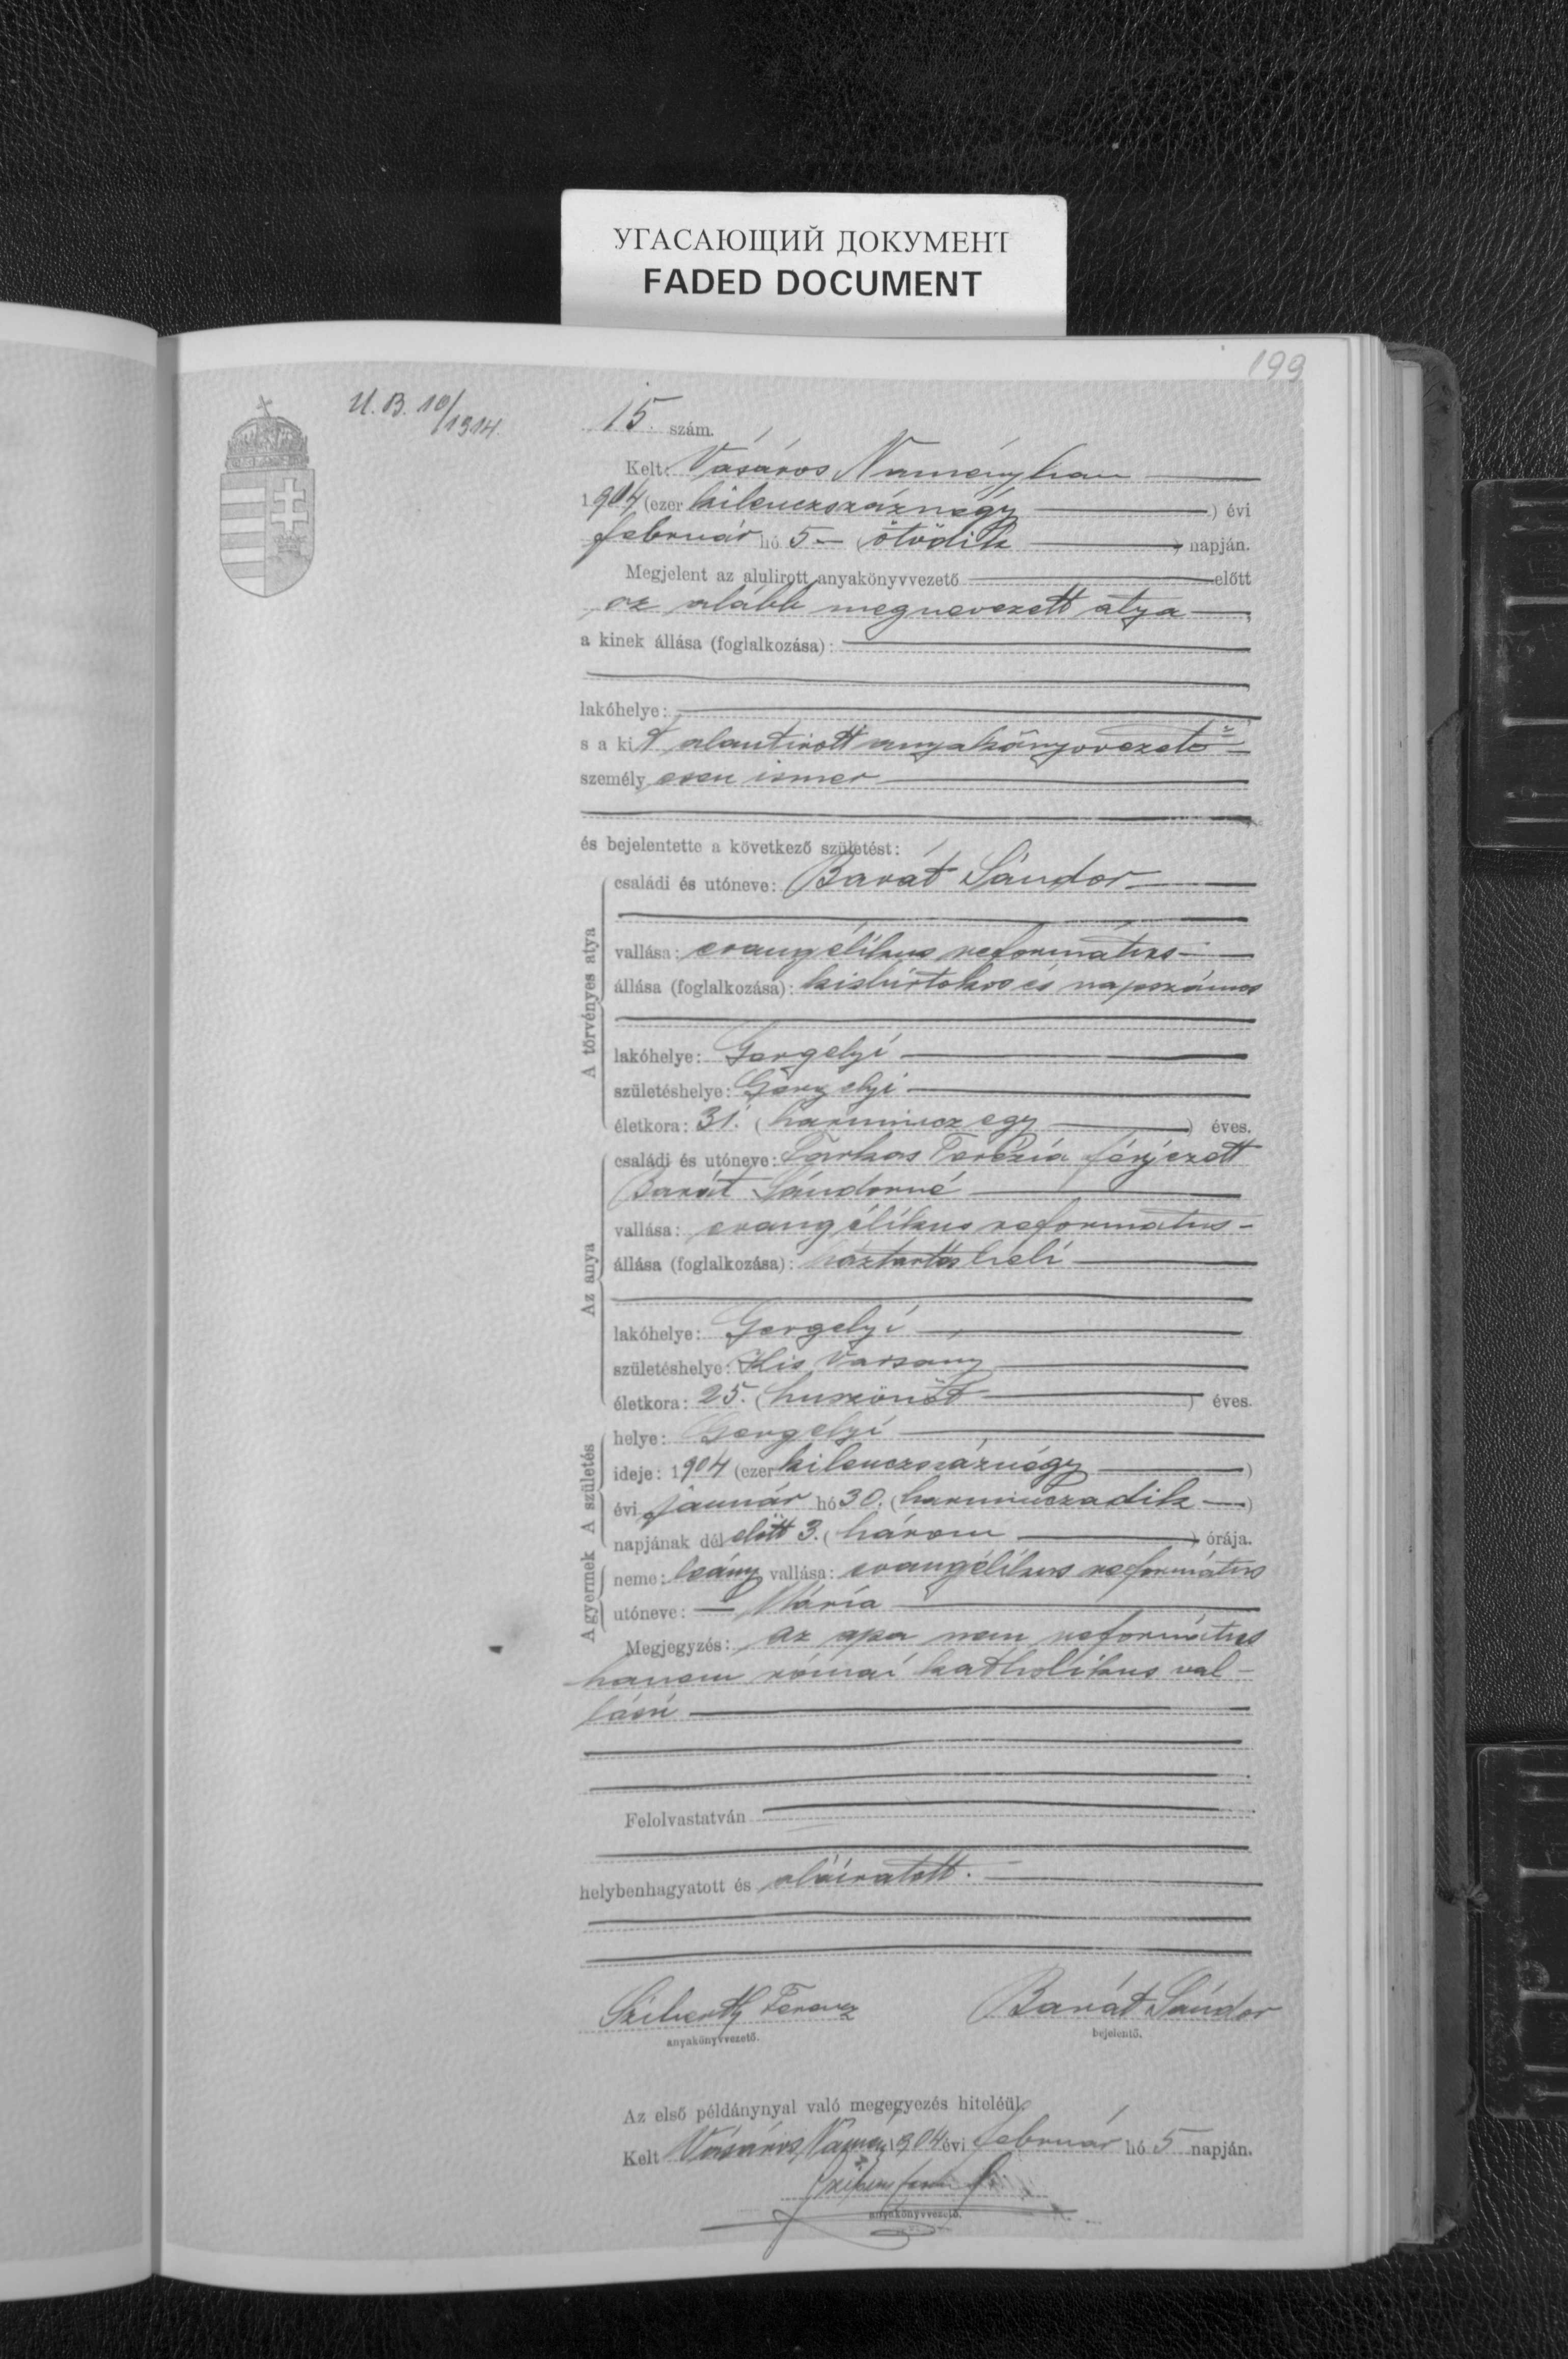 УГАСАЮЩИЙ ДОКУМЕНТ
FADED DOCUMENT
199
U. B. 10/1914.
15. szám.
Kelt: Vásáros Naményban
1904 (ezer kilenczszáznégy ) évi
február hó 5 – (ötödik ) napján.
Megjelent az alulirott anyakönyvvezető előtt
az alább megnevezett atya ,
a kinek állása (foglalkozása):
lakóhelye:
s a kit alantirott anyakönyvvezető
személyesen ismer
és bejelentette a következő születést:
A törvényes atya
családi és utóneve: Barát Sándor
vallása: evangélikus református
állása (foglalkozása): kisbirtokos és napszámos
lakóhelye: Gergelyi
születéshelye: Gergelyi
életkora: 31. (harminczegy ) éves.
Az anya
családi és utóneve: Farkas Terézia férjezett
Barát Sándorné
vallása: evangélikus református –
állása (foglalkozása): háztartásbeli
lakóhelye: Gergelyi
születéshelye: Kis Varsány
életkora: 25. (huszonöt ) éves.
A születés
helye: Gergelyi
ideje: 1904 (ezer kilenczszáznégy )
évi január hó 30. (harminczadik )
napjának délelőtt 3. (három ) órája.
A gyermek
neme: leány vallása: evangélikus református
utóneve: – Mária
Megjegyzés: az apa nem református
hanem római katholikus val-
lású
Felolvastatván
helybenhagyatott és aláiratott.
Ferencz Barát Sándor
anyakönyvvezető. bejelentő.
Az első példánynyal való megegyezés hiteléül.
Kelt Vásáros Namény 1904 évi február hó 5 napján.
anyakönyvvezető.